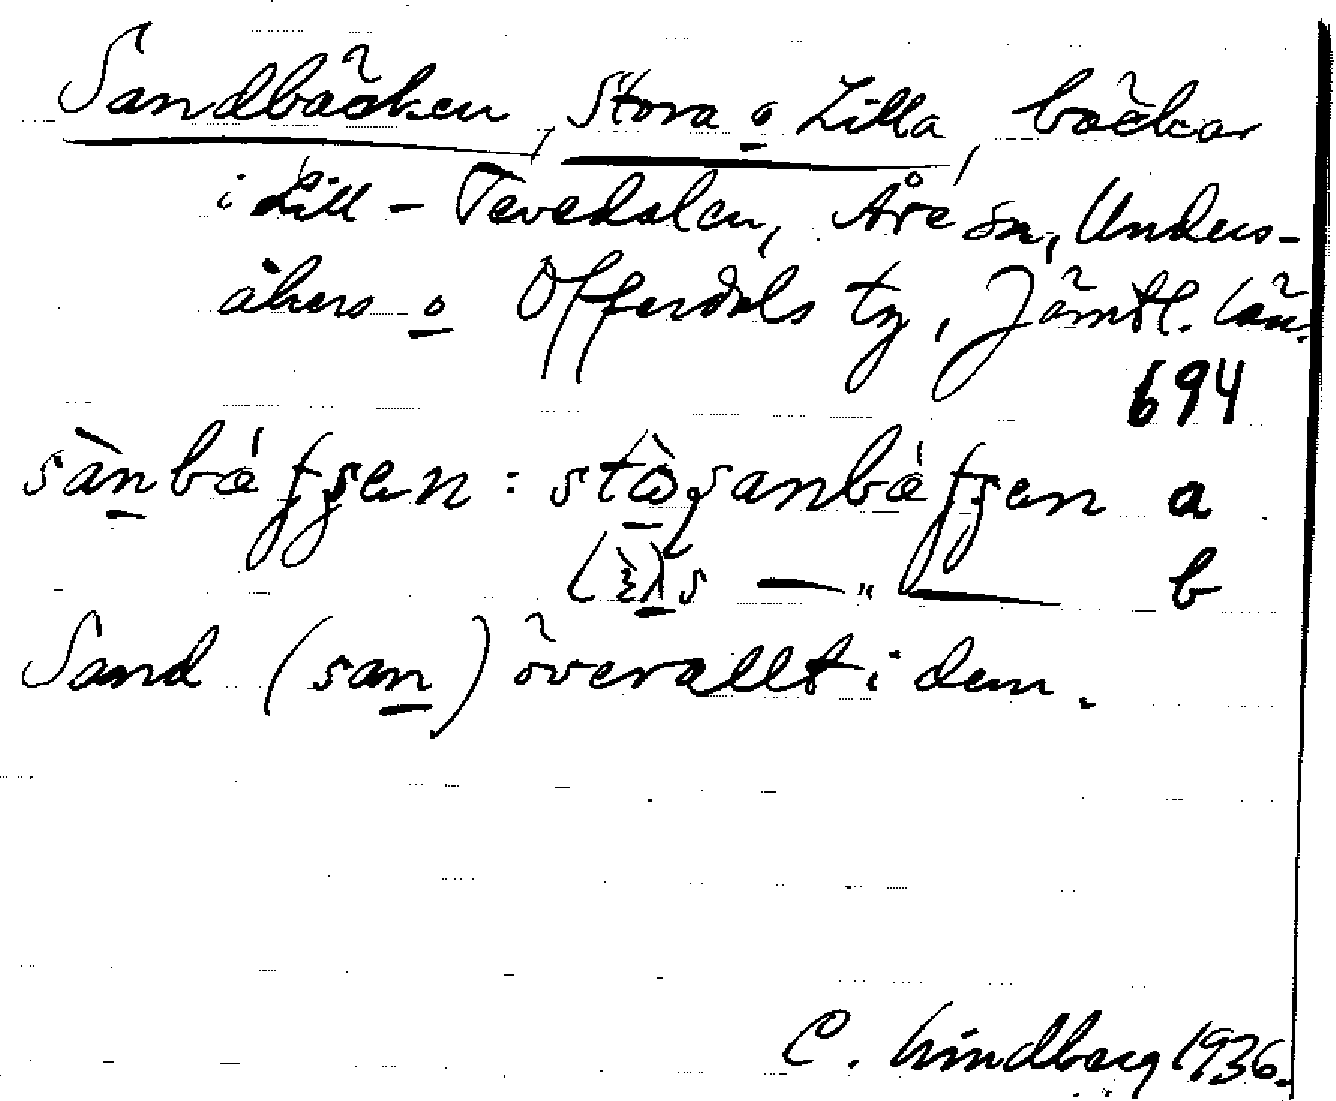 Sandbäcken, Stora o Lilla, bäckar
i Lill-Tevedalen, Åre sn, Unders-
åkers o Offerdals tg, Jämtl. län.
694
a
b
Sand (san) överallt i dem.
C. Lindberg 1936.